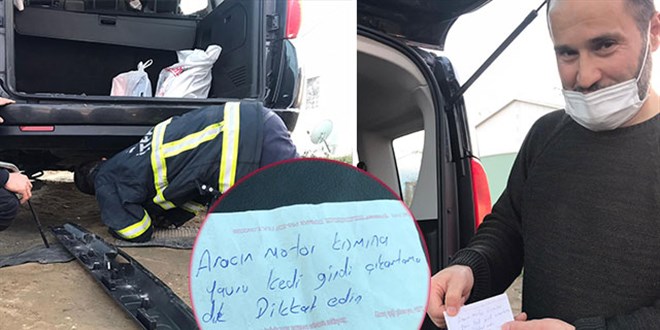 Aracın motor kısmına
yavru kedi girdi çıkartama
dık Dikkat edin